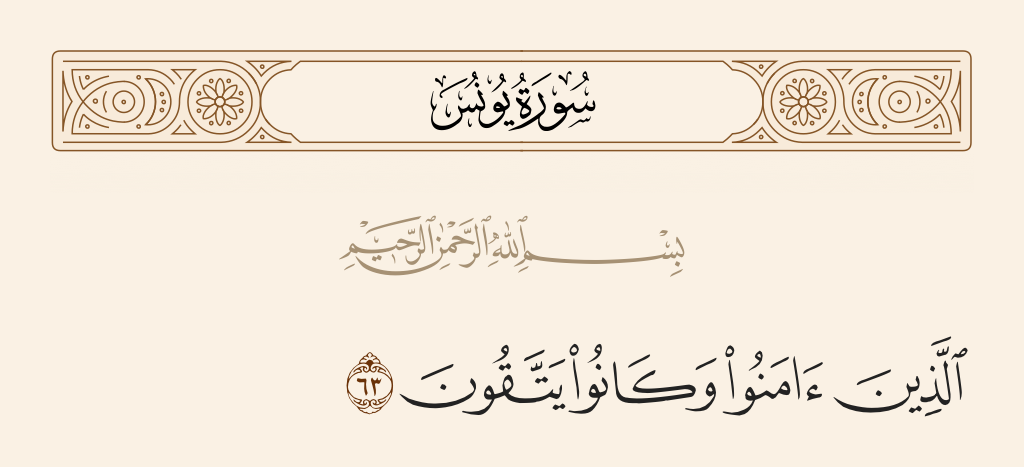 سُورَةُ يُونُسَ
بِسْمِ ٱللَّهِ ٱلرَّحْمَٰنِ ٱلرَّحِيمِ
ٱلَّذِينَ ءَامَنُوا۟ وَكَانُوا۟ يَتَّقُونَ ٦٣